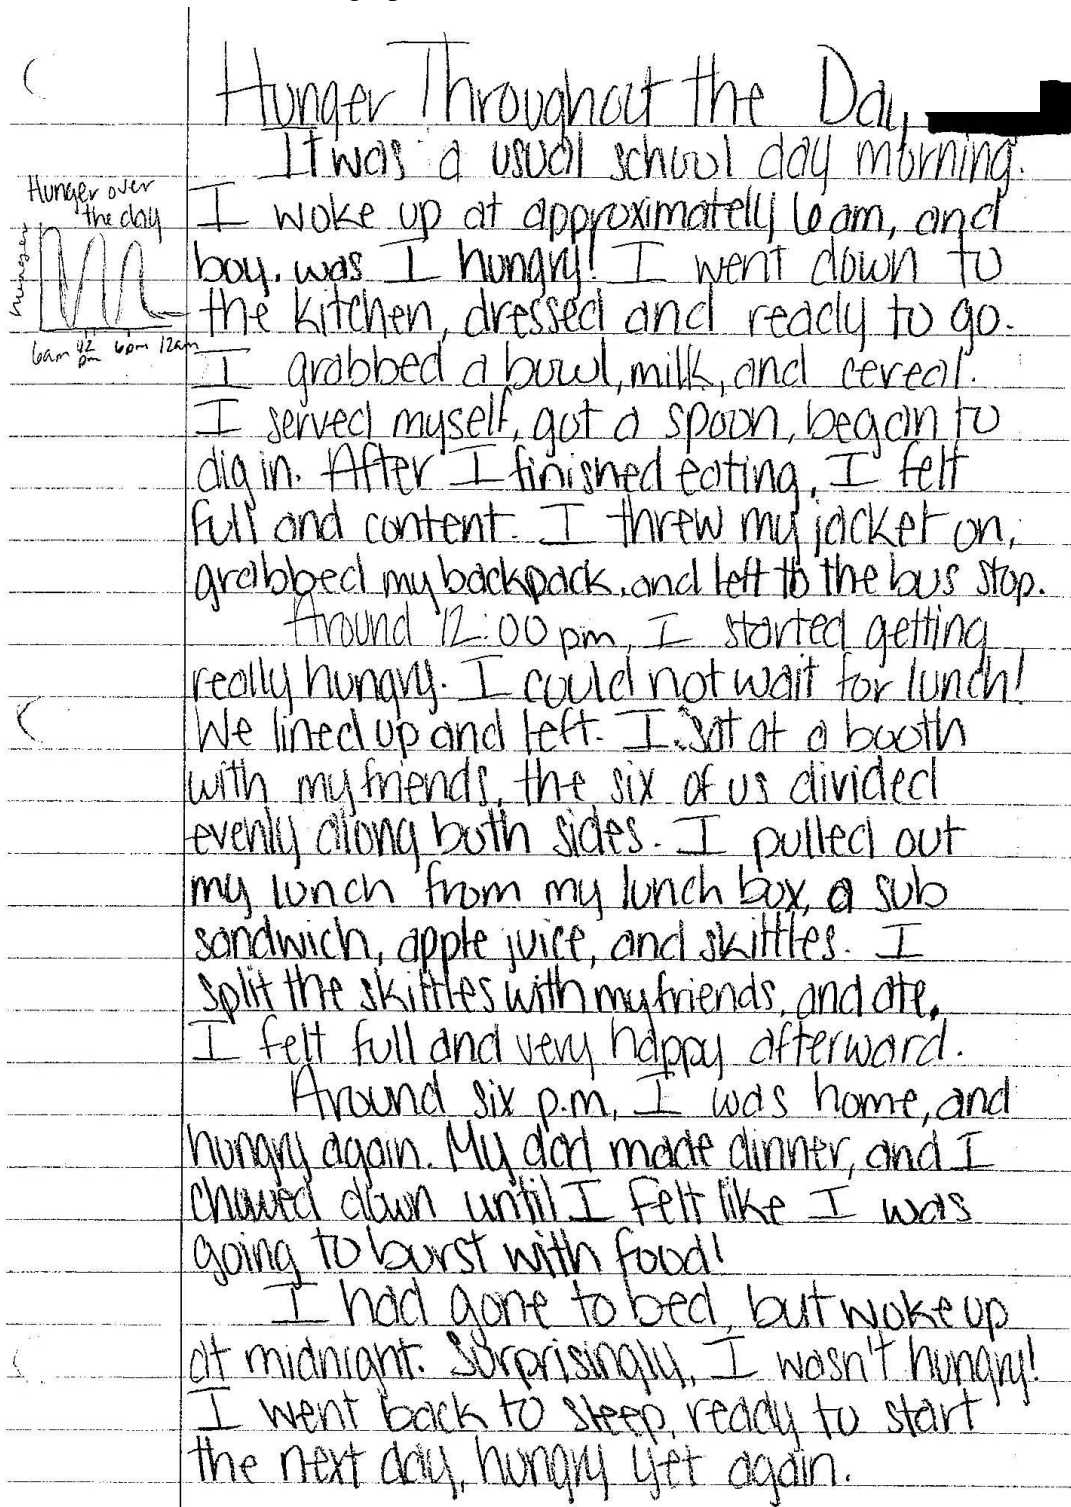 Hunger Throughout the Day
It was a usual school day morning.
Hunger over
the day
hunger
6am 12 pm 6pm 12am
I woke up at approximately 6am, and
boy, was I hungry! I went down to
the kitchen, dressed and ready to go.
I grabbed a bowl, milk, and cereal.
I served myself, got a spoon, began to
dig in. After I finished eating, I felt
full and content. I threw my jacket on,
grabbed my backpack, and left to the bus stop.
Around 12:00 pm, I started getting
really hungry. I could not wait for lunch!
We lined up and left. I sat at a booth
with my friends, the six of us divided
evenly along both sides. I pulled out
my lunch from my lunch box, a sub
sandwich, apple juice, and skittles. I
split the skittles with my friends, and ate.
I felt full and very happy afterward.
Around six p.m, I was home, and
hungry again. My dad made dinner, and I
chowed down until I felt like I was
going to burst with food!
I had gone to bed, but woke up
at midnight. Surprisingly, I wasn't hungry!
I went back to sleep, ready to start
the next day, hungry yet again.